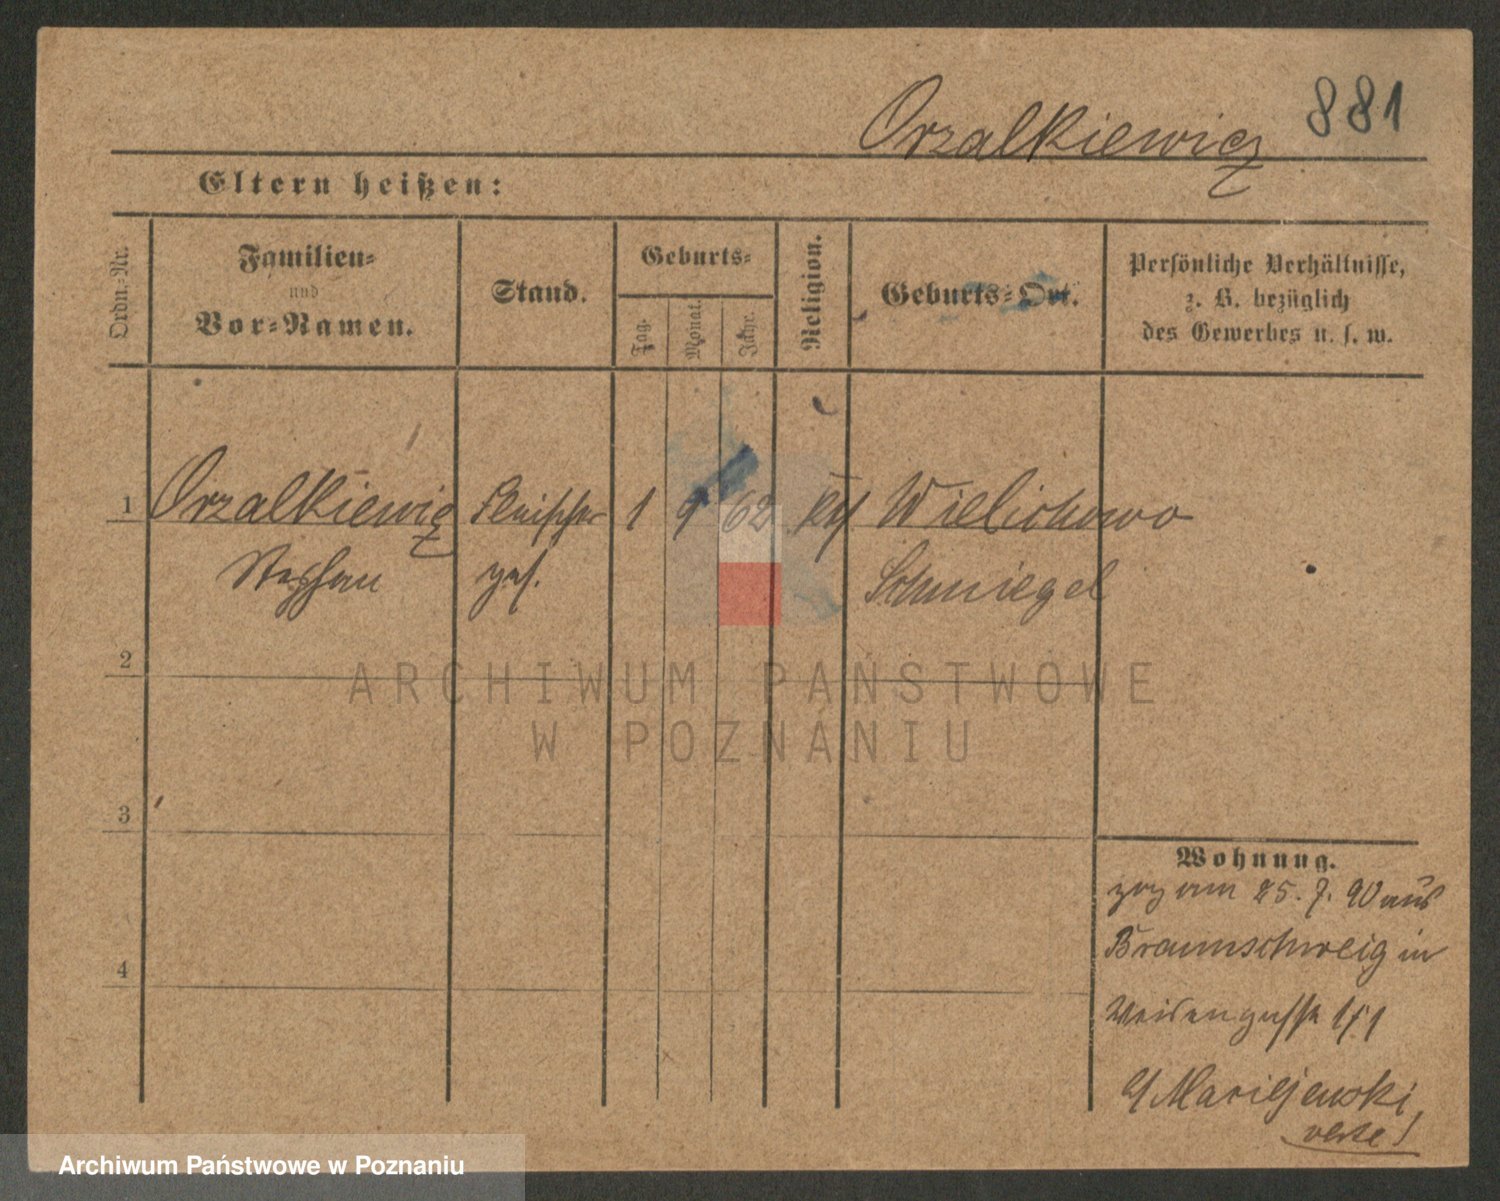 881
Orzalkiewicz
Eltern heißen:
Ordn.-Nr.
Familien-
und
Vor-Namen.
Stand.
Geburts-
Tag.
Monat.
Jahr.
Religion.
Geburts-Ort.
Persönliche Verhältnisse,
z. B. bezüglich
des Gewerbes u. s. w.
1 Orzalkiewicz 1 9 62 Wielichowo
Stephan Schmiegel
2
3
4
Wohnung.
zog am 25. 7. 90 aus
Braunschweig in
ARCHIWUM PAŃSTWOWE
W POZNANIU
Archiwum Państwowe w Poznaniu